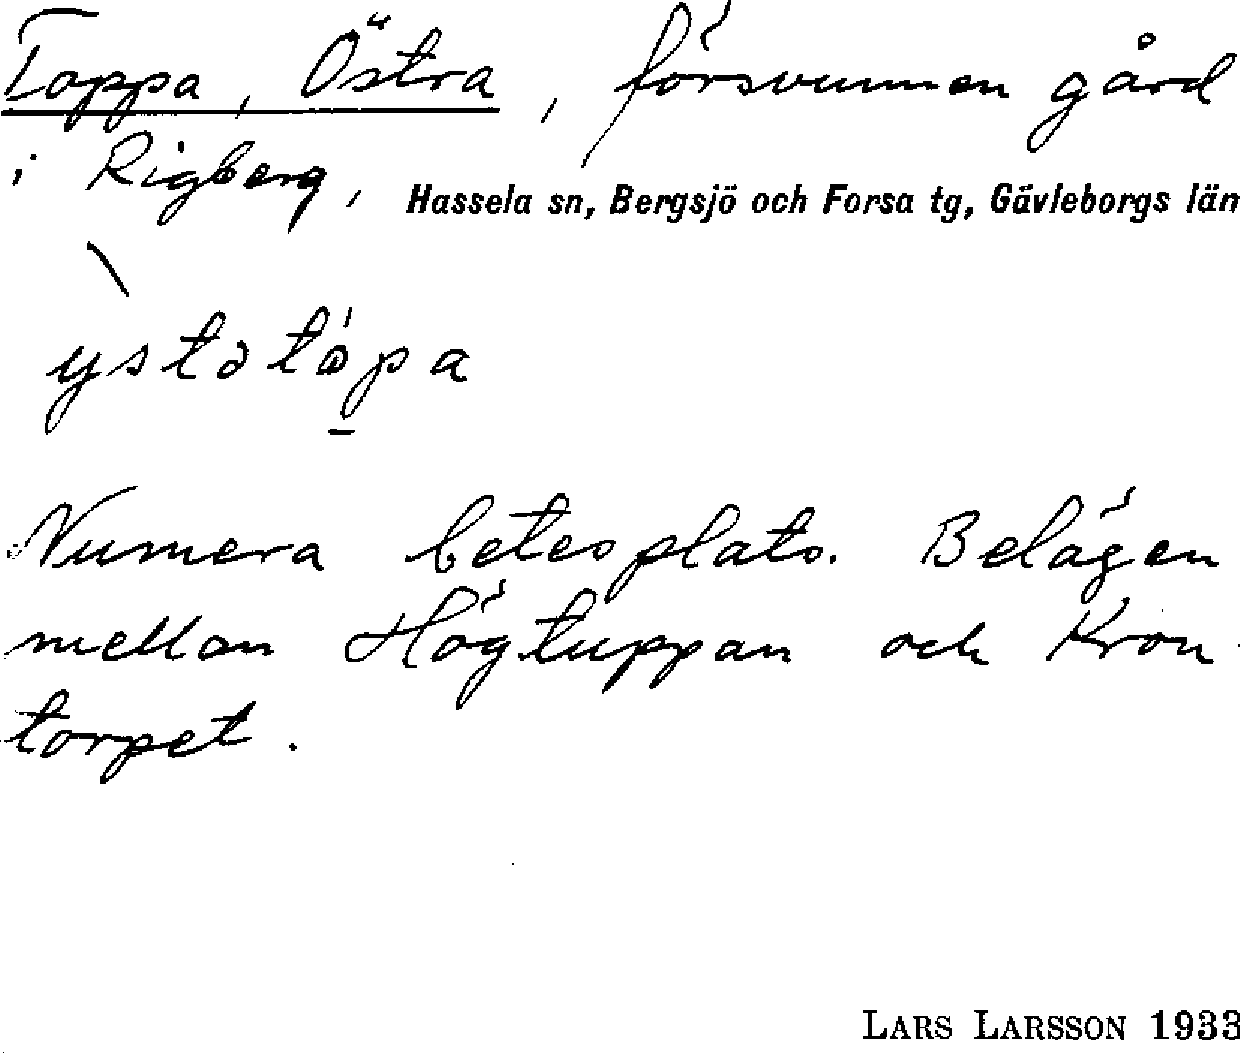 Toppa, Östra, försvunnen gård
i Rigberg, Hassela sn, Bergsjö och Forsa tg, Gävleborgs län
Numera betesplats. Belägen
mellan Högtuppan och Kron-
torpet.
LARS LARSSON 1933